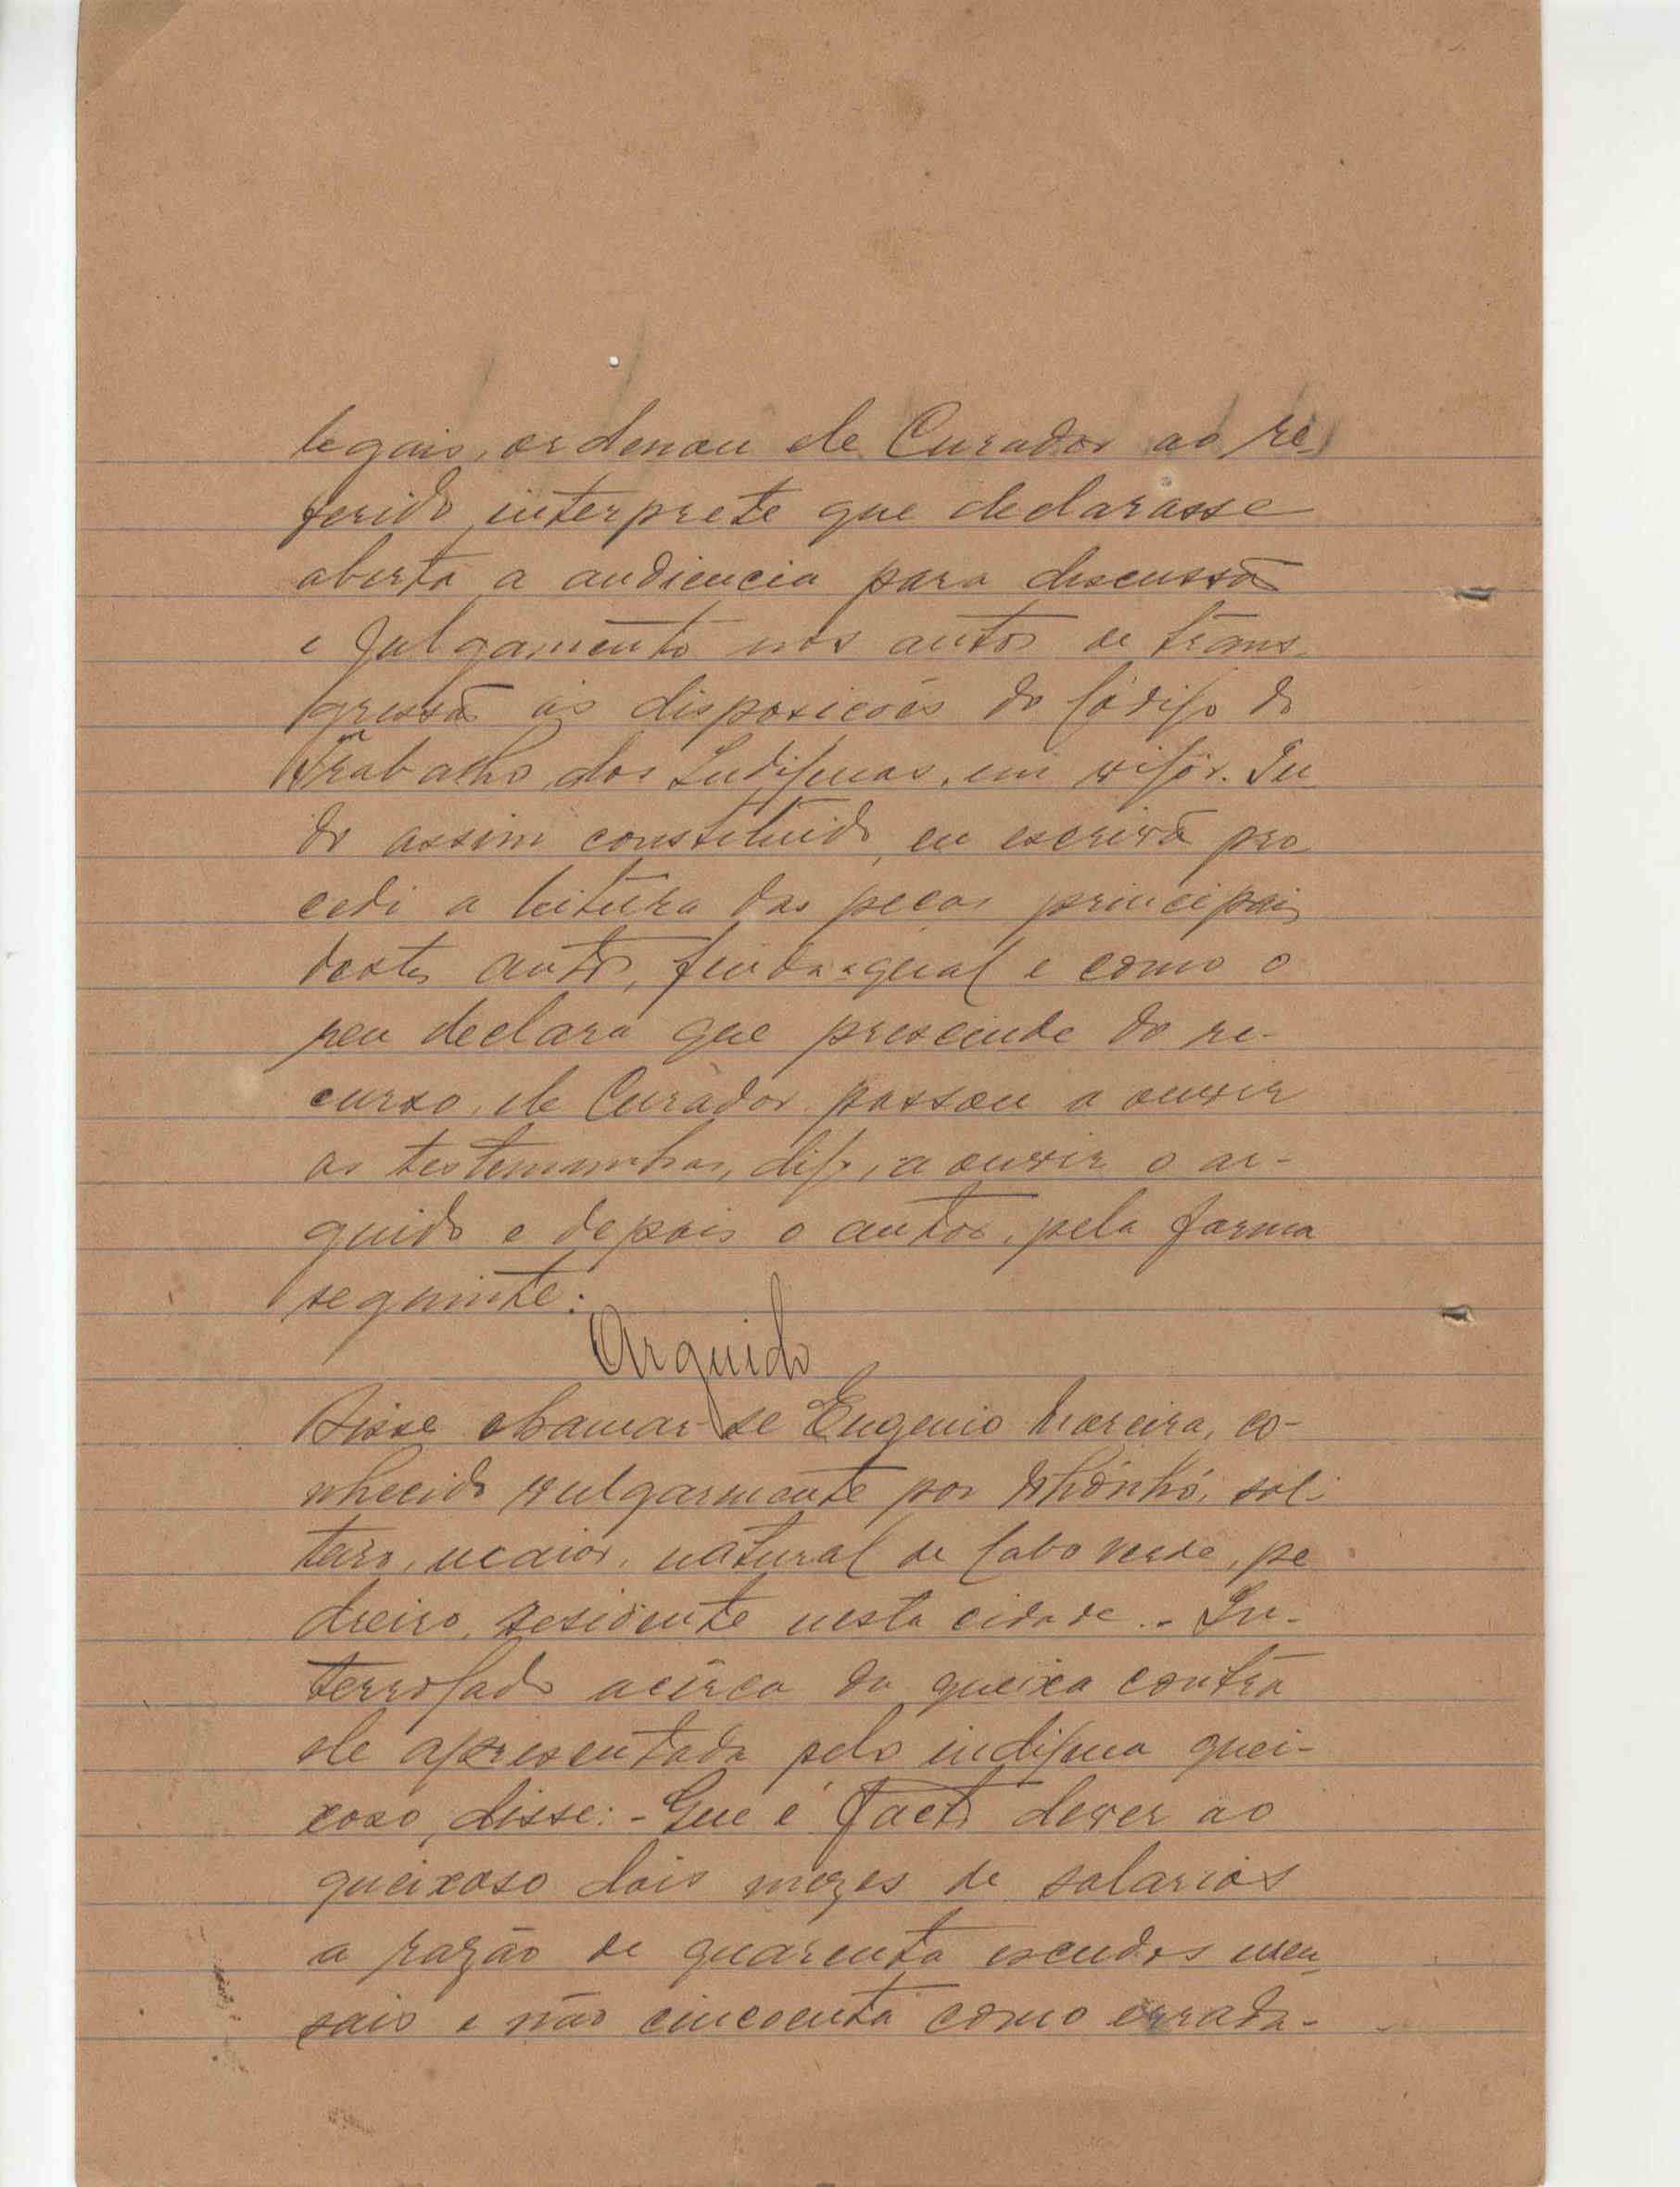 legais, ordenou ele Curador ao re-
ferido interprete que declarasse
aberta a audiencia para discussão
e julgamento nos autos de trans-
gressão ás disposicoés do Código do
Trabalho dos Indigenas, em vigôr. Tu
do assim constituido, eu escrivão pro
cedi a leitura das peças principais
destes autos, finda a qual e como o
reu declara que prescinde do re-
curso, ele Curador passou a ouvir
as testemunhas, digo, a ouvir o ar-
guido e depois o autor, pela forma
seguinte:
Arguido
Disse chamar-se Eugenio Moreira, co-
nhecido vulgarmente por Nhônhó, sol-
teiro, maior, natural de Cabo Verde, pe
dreiro, residente nesta cidade.- In-
terrogado acêrca da queixa contra
ele apresentada pelo indigena quei-
xoso, disse:- Que é facto dever ao
queixoso dois mezes de salarios
a razão de quarenta escudos men
sais e não cincoenta como errada-